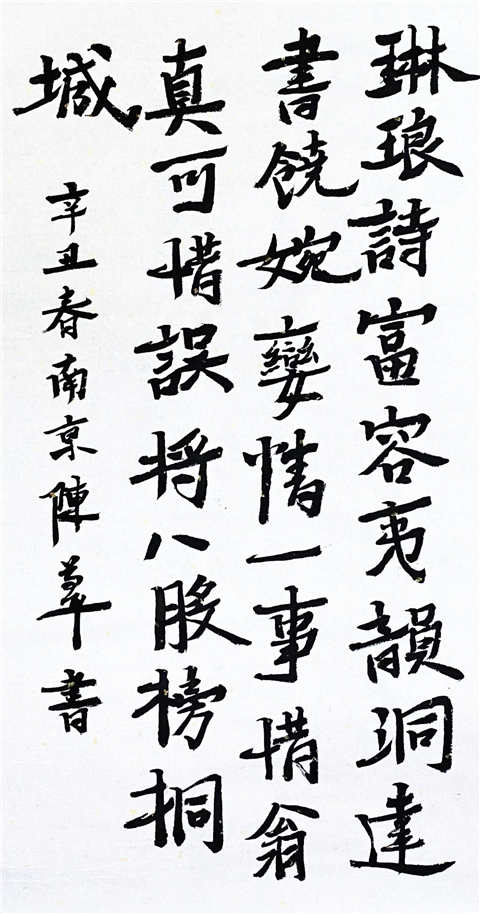 琳琅詩富容夷韻洞達
書饒婉孌情一事惜翁
真可惜誤將八股榜桐
城
辛丑春南京陳書